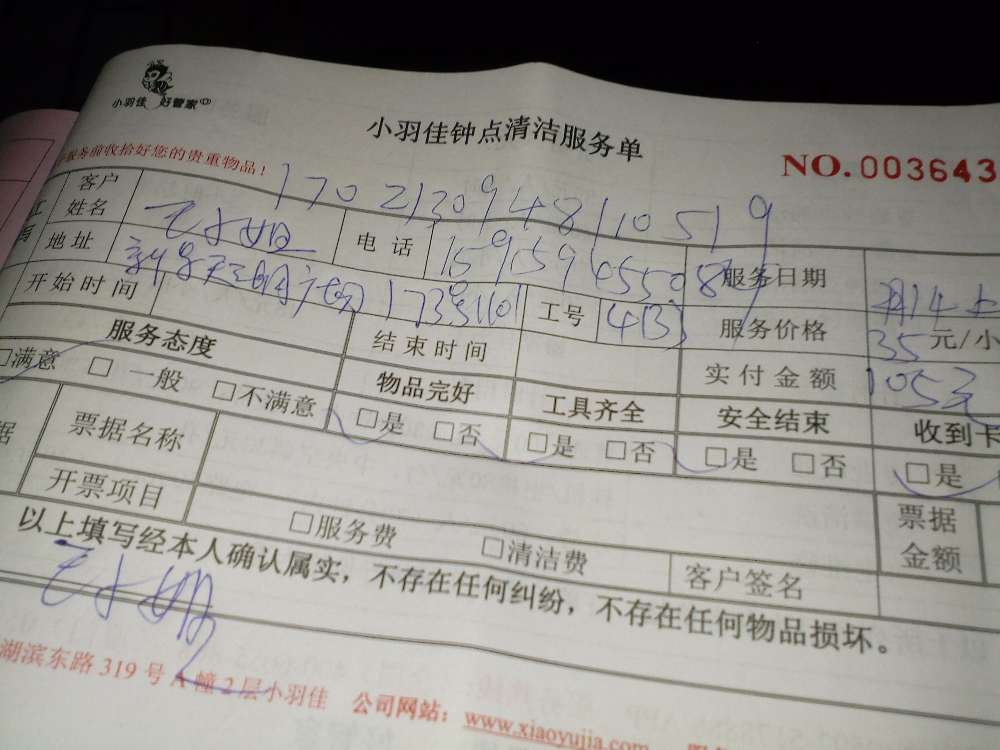 小羽佳 好管家
小羽佳钟点清洁服务单
NO.003643
服务前收拾好您的贵重物品！
170213094811051９
客户姓名 电话 服务日期
地址
开始时间 工号 413 服务价格 35 元/小
服务态度 结束时间 实付金额 105元
□满意 □一般 □不满意 物品完好 工具齐全 安全结束 收到卡
□是 □否 □是 □否 □是 □否 □是
票据名称 票据金额
开票项目 □服务费 □清洁费 客户签名
以上填写经本人确认属实，不存在任何纠纷，不存在任何物品损坏。
湖滨东路319号A幢2层小羽佳 公司网站：www.xiaoyujia.com